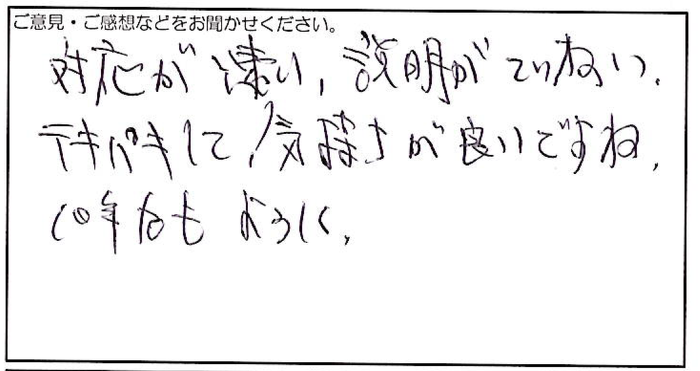 ご意見・ご感想などをお聞かせください。
対応が速い、説明がていねい、
テキパキして、気持ちが良いですね、
10年なも よろしく、